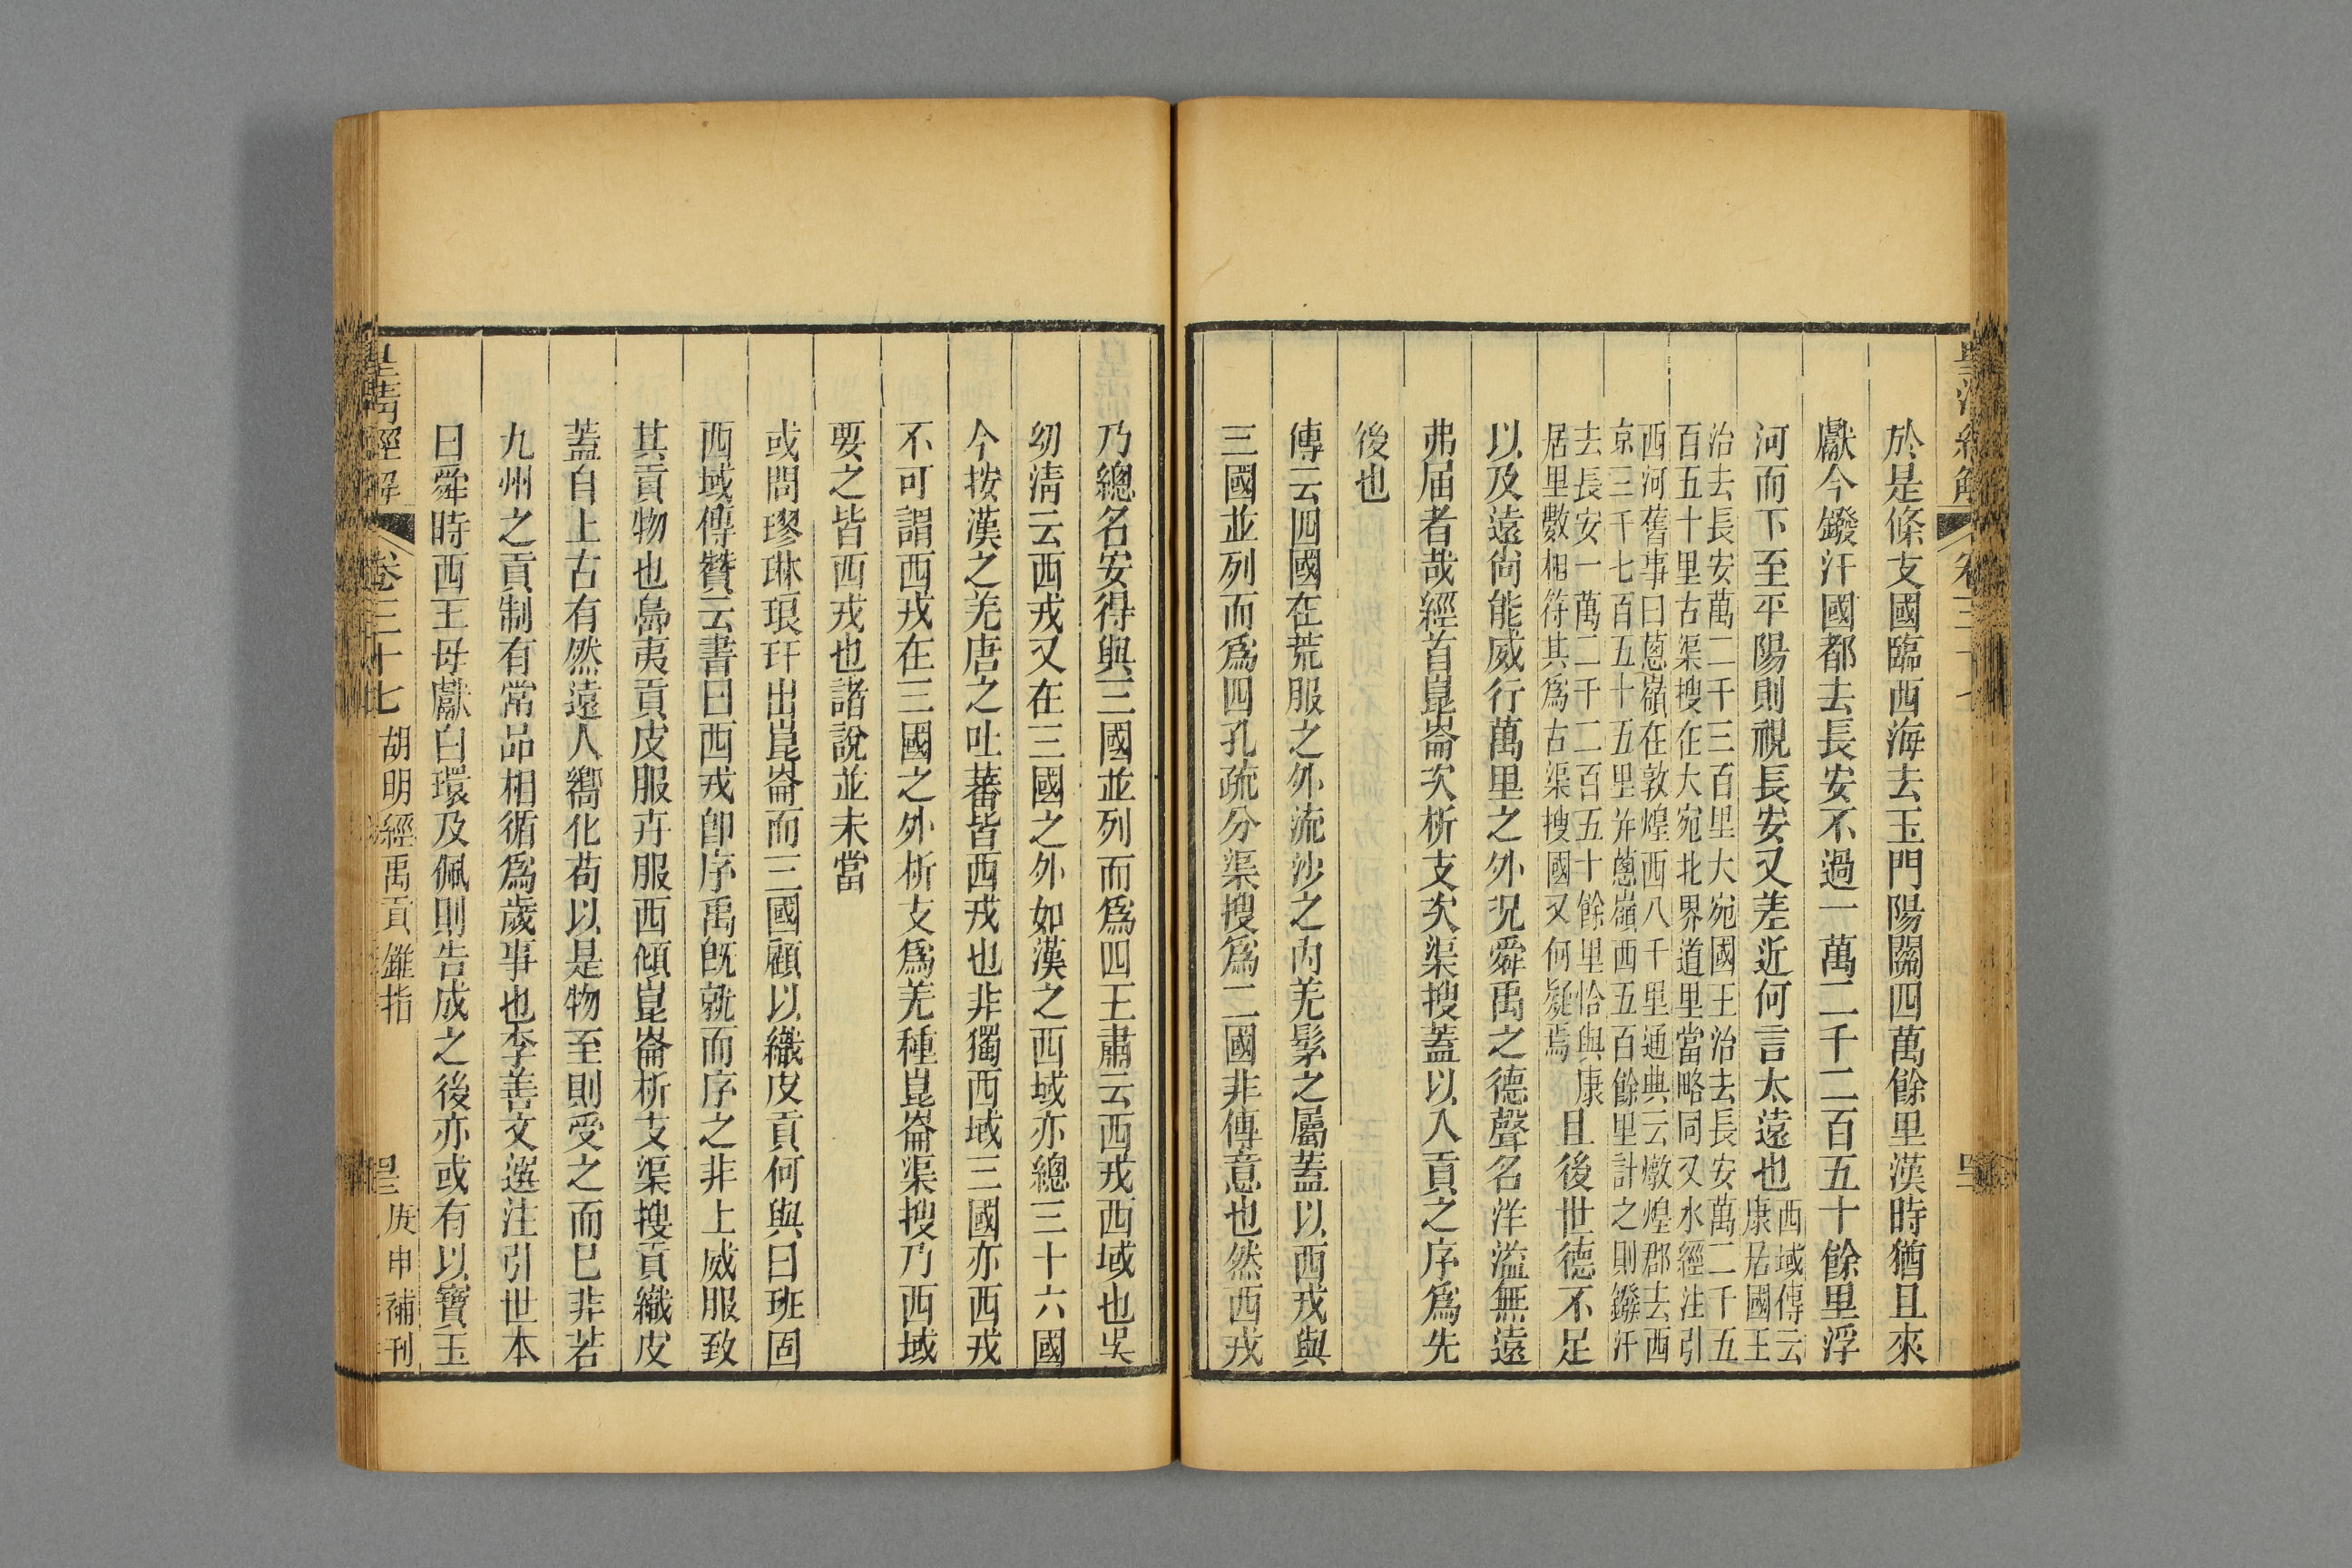 於是條支國臨西海去玉門陽關四萬餘里漢時猶且來
獻今鏺汗國都去長安不過一萬二千二百五十餘里浮
河而下至平陽則視長安又差近何言太遠也
西域傳云
康居國王
治去長安萬二千三百里大宛國王治去長安萬二千五
百五十里古渠搜在大宛北界道里當略同又水經注引
西河舊事曰蔥嶺在敦煌西八千里通典云燉煌郡去西
京三千七百五十五里并蔥嶺西五百餘里計之則鏺汗
去長安一萬二千二百五十餘里恰與康
居里數相符其爲古渠搜國又何疑焉
且後世德不足
以及遠尙能威行萬里之外況舜禹之德聲名洋溢無遠
弗屆者哉經首崑崙次析支次渠搜蓋以入貢之序爲先
後也
傳云四國在荒服之外流沙之內羌髳之屬蓋以西戎與
三國並列而爲四孔疏分渠搜爲二國非傳意也然西戎
乃總名安得與三國並列而爲四王肅云西戎西域也吳
幼淸云西戎又在三國之外如漢之西域亦總三十六國
今按漢之羌唐之吐蕃皆西戎也非獨西域三國亦西戎
不可謂西戎在三國之外析支爲羌種崑崙渠搜乃西域
要之皆西戎也諸說並未當
或問璆琳琅玕出崑崙而三國顧以織皮貢何與曰班固
西域傳贊云書曰西戎卽序禹旣就而序之非上威服致
其貢物也島夷貢皮服卉服西傾崑崙析支渠搜貢織皮
蓋自上古有然遠人嚮化苟以是物至則受之而已非若
九州之貢制有常品相循爲歲事也李善文選注引世本
曰舜時西王母獻白環及佩則告成之後亦或有以寶玉
皇淸經解 卷三十七 胡明經禹貢錐指 庚申補刊